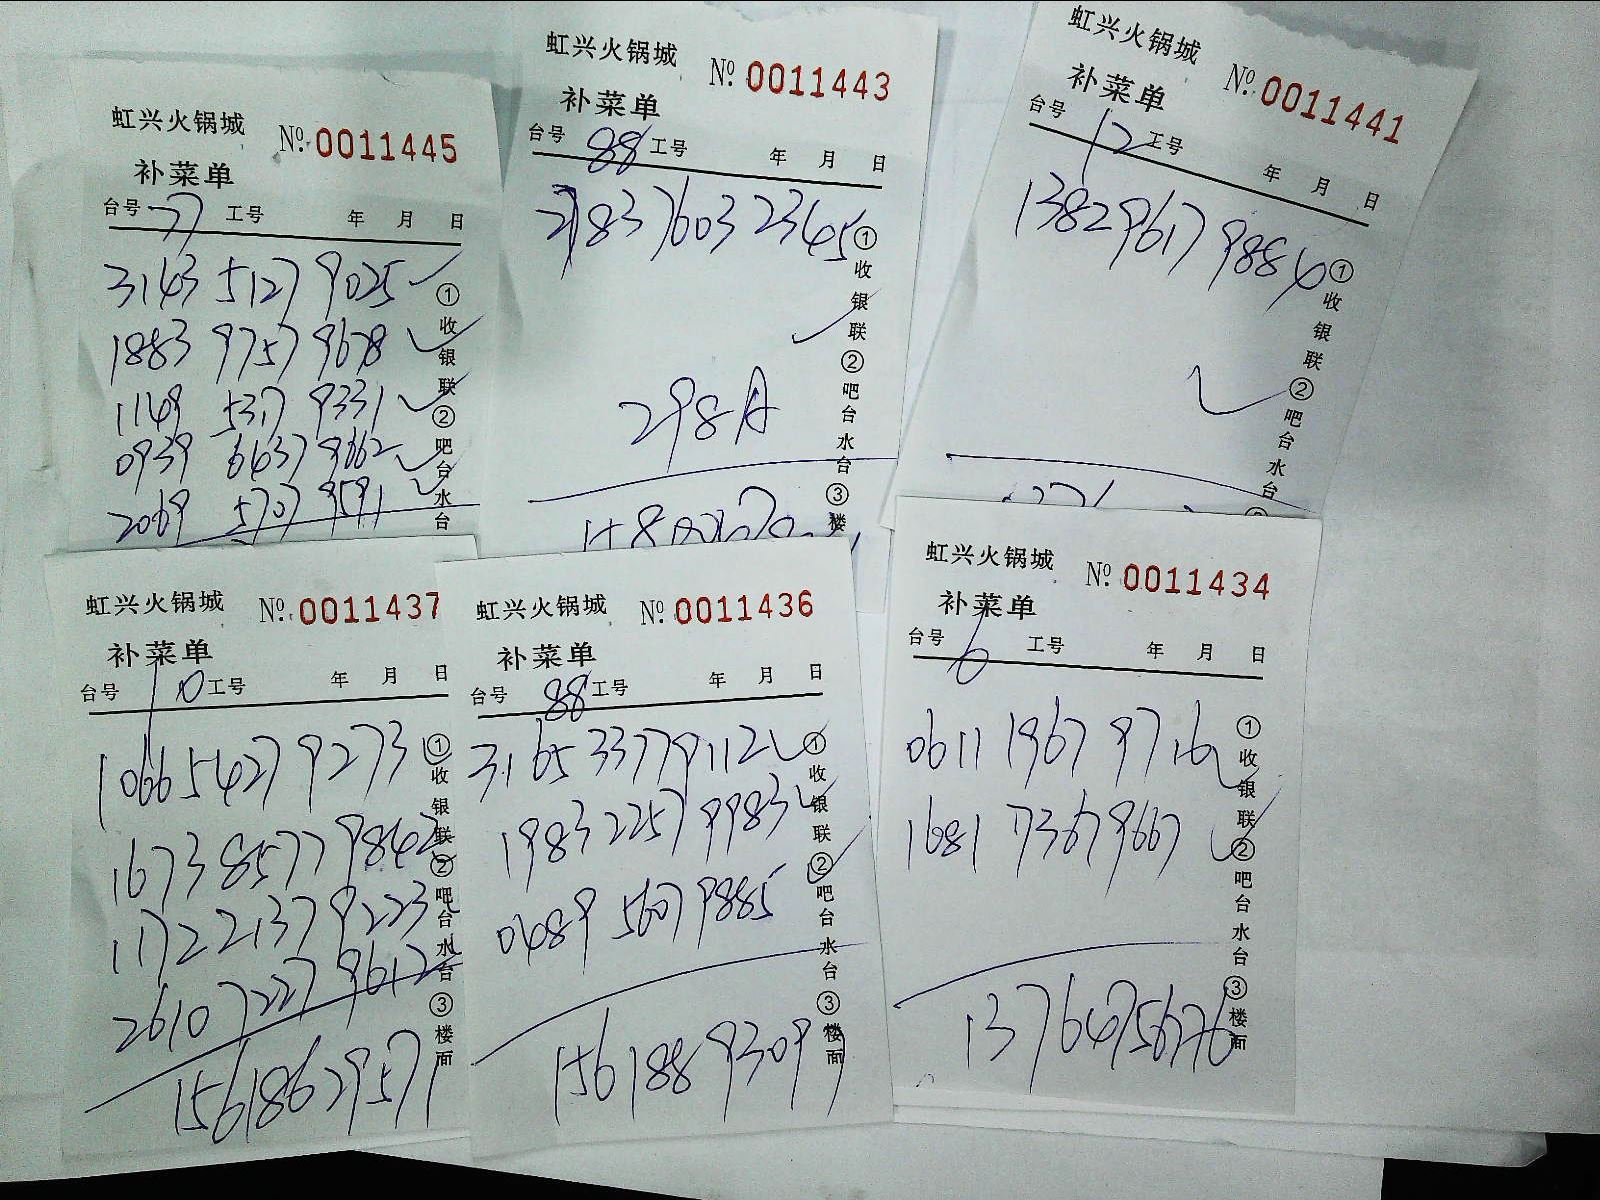 虹兴火锅城 Nº. 0011445
补菜单
台号 77 工号 年 月 日
3143 5127 9025
1883 9757 9678
1149 5317 9331
0939 6437 9662
2069 5707 9591
①收银联②吧台水台
虹兴火锅城 Nº. 0011443
补菜单
台号 88 工号 年 月 日
837603 2345
298A
①收银联②吧台水台③楼
虹兴火锅城 Nº. 0011441
补菜单
台号 12 工号 年 月 日
1382 9617 9884
①收银联②吧台水台
虹兴火锅城 Nº. 0011437
补菜单
台号 10 工号 年 月 日
1066 5427 9273
1673 8577 9842
1172 2137 9223
2610 7227 9612
15618629577
①收银联②吧台水台③楼面
虹兴火锅城 Nº. 0011436
补菜单
台号 88 工号 年 月 日
3165 3377 9112
1983 2257 9983
0489 5607 9885
15618893099
①收银联②吧台水台③楼面
虹兴火锅城 Nº. 0011434
补菜单
台号 6 工号 年 月 日
0611 1967 9716
1681 7367 9667
13764975676
①收银联②吧台水台③楼面